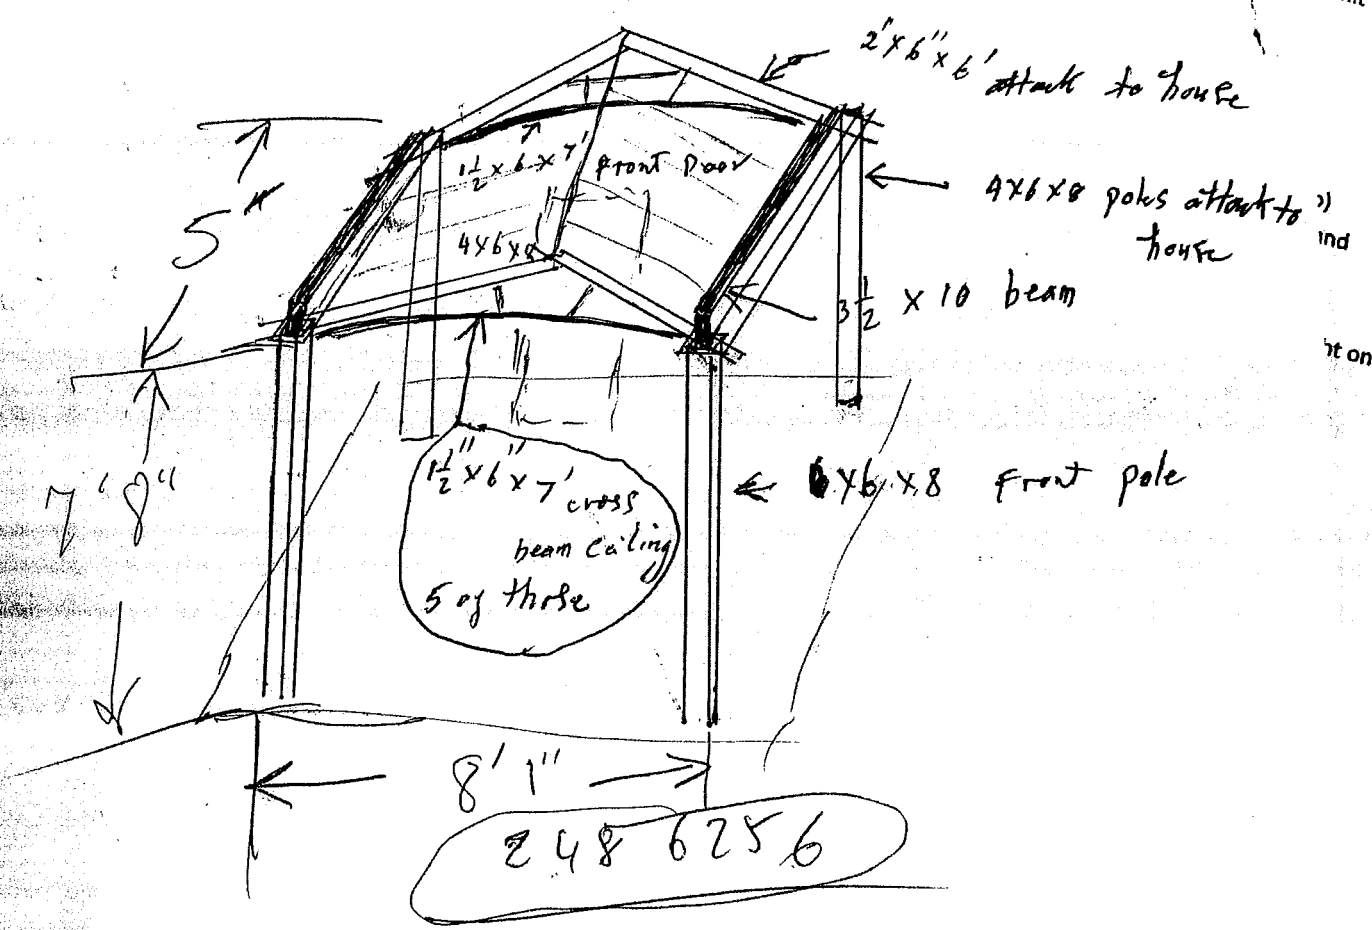 2" x 6" x 6'
attack to house
5"
1 1/2 x 6 x 7' Front Door
4x6x8 poles attack to
house
")
ind
4x6x8
3 1/2 x 10 beam
nt on
7' 8"
1 1/2" x 6" x 7'
cross
beam ceiling
5 of those
6x6x8 Front pole
8' 1"
248 6256